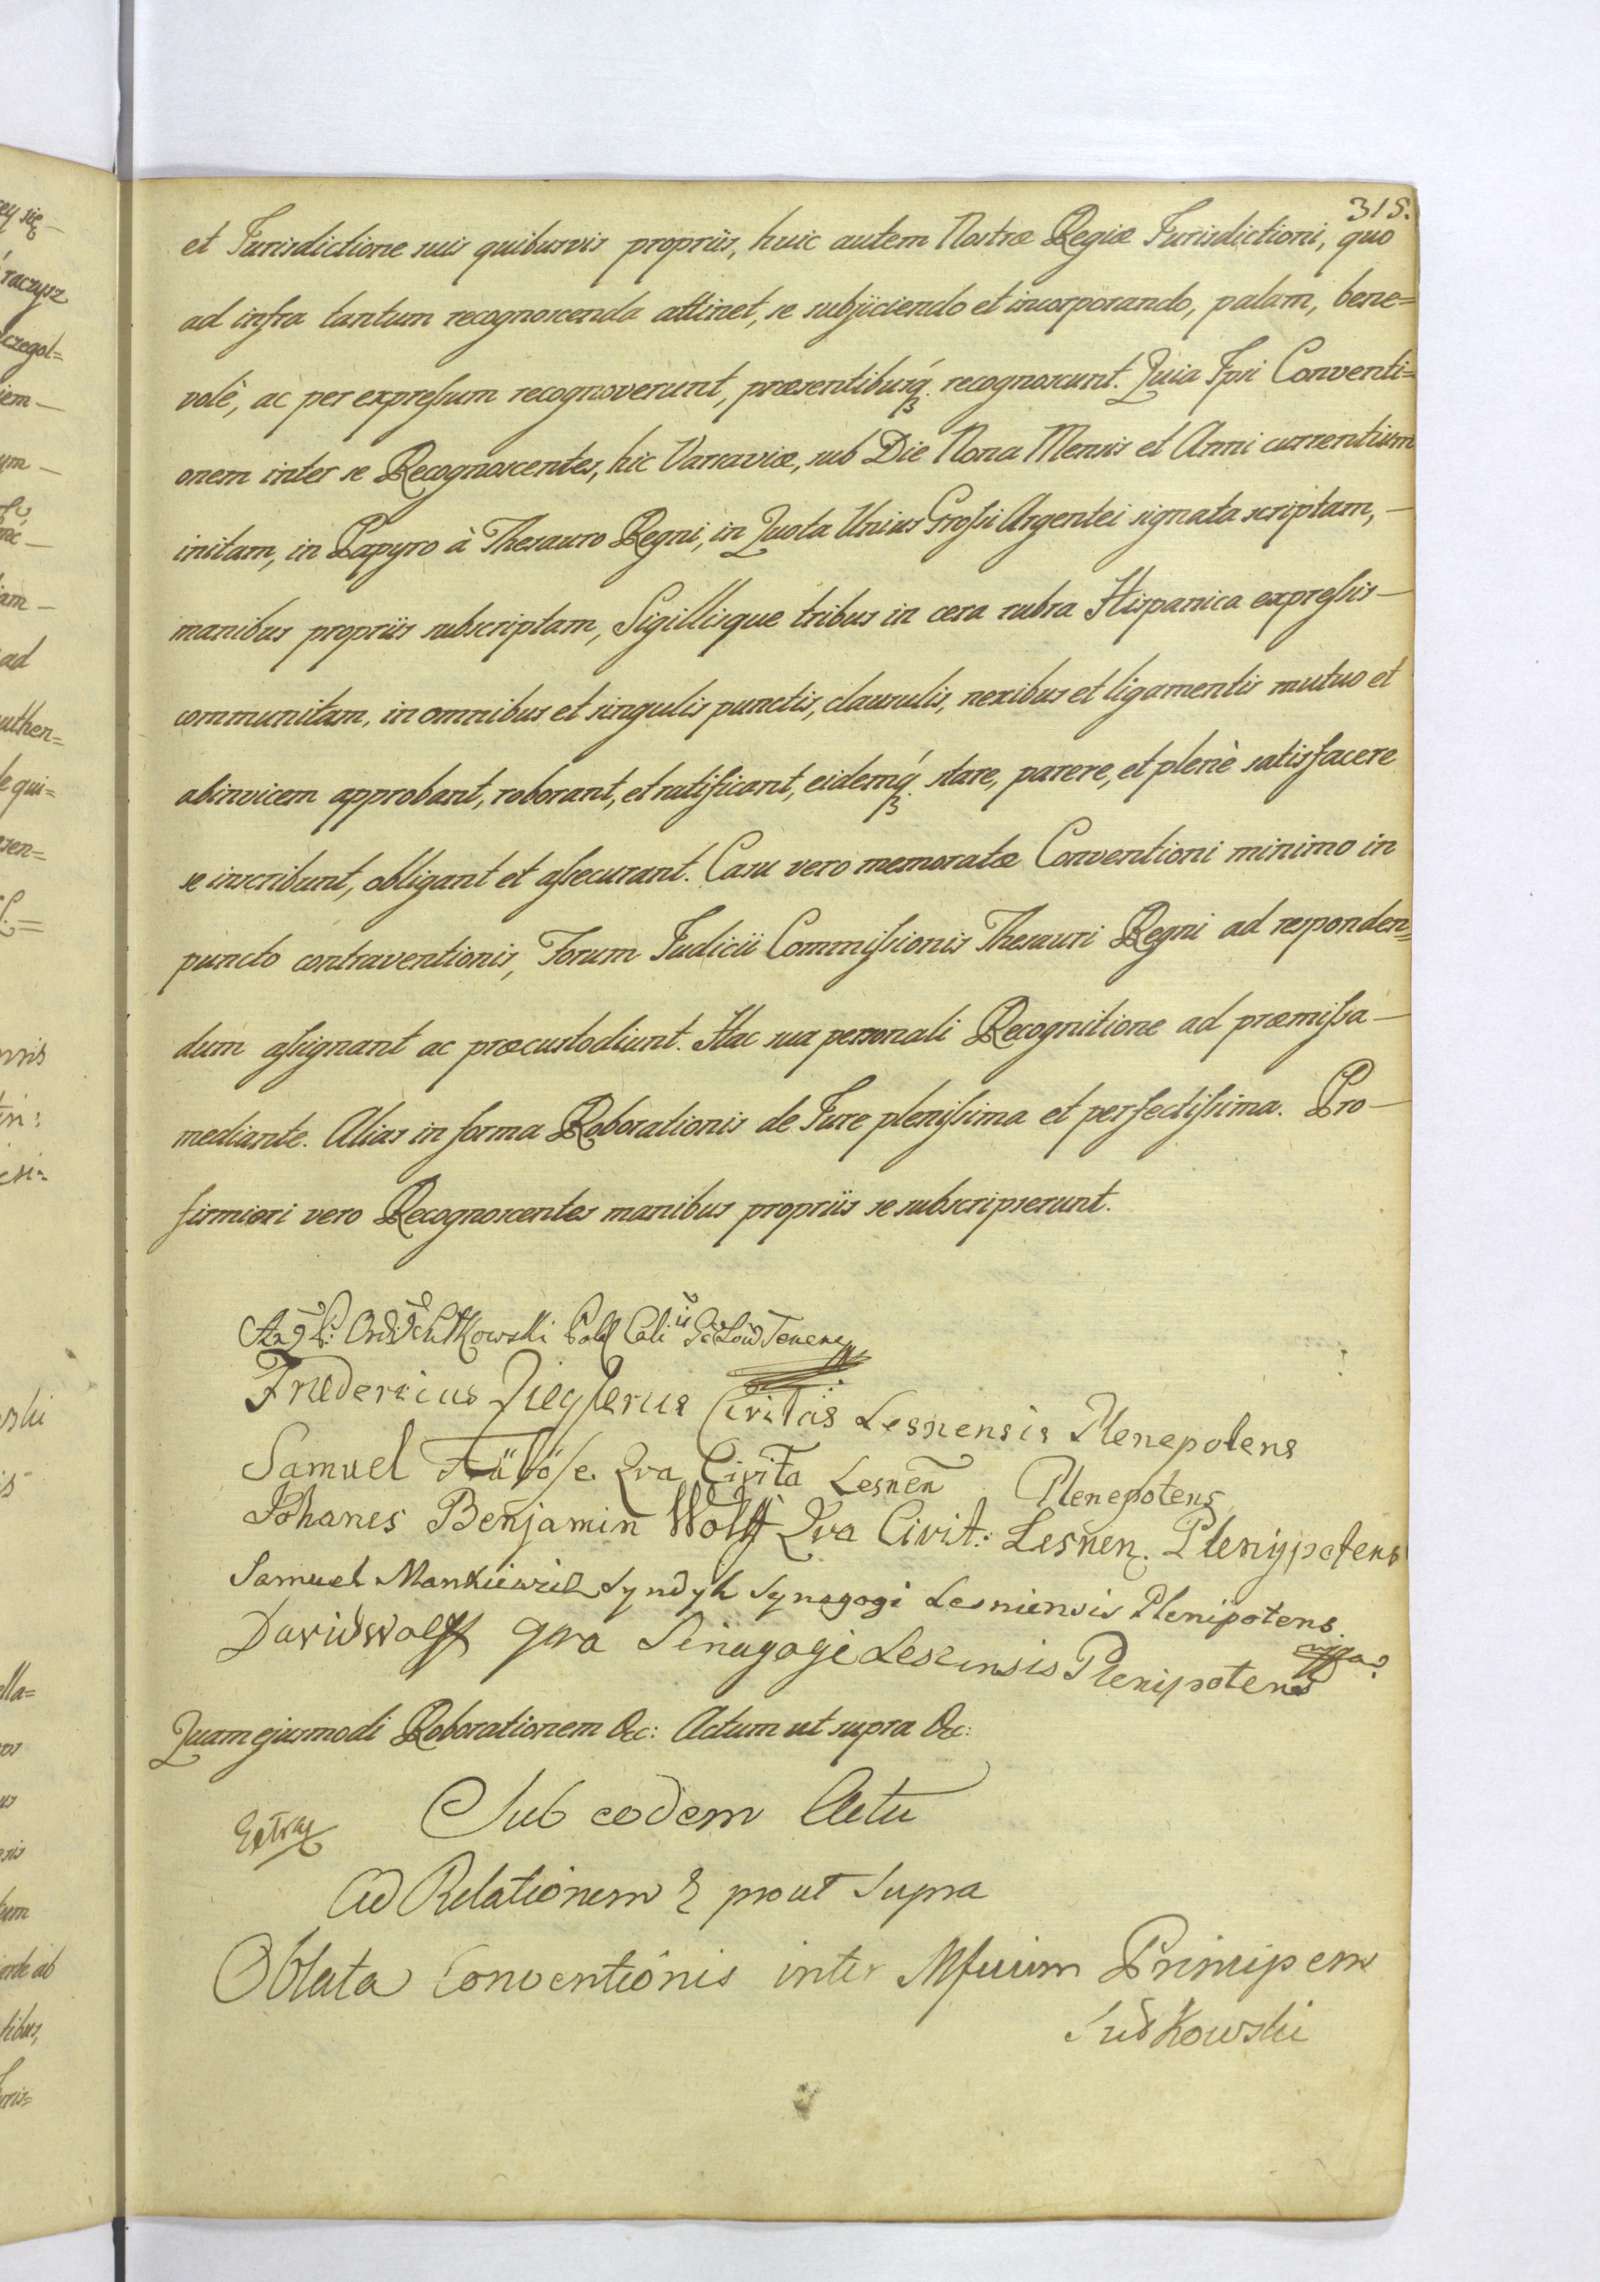 315.
et Jurisdictione suis quibusvis propriis, huic autem Nostræ Regiæ Jurisdictioni, quo
ad infra tantum recognoscenda attinet, se subjiciendo et incorporando, palam, bene=
volè, ac per expreſsum recognoverunt, præsentibusq́ʒ recognoscunt. Quia Ipsi Conventi=
onem inter se Recognoscentes, hic Varsaviæ, sub Die Nona Mensis et Anni currentium
initam, in Papyro à Thesauro Regni, in Quota Unius Groſsi Argentei signata scriptam, —
manibus propriis subscriptam, Sigillisque tribus in cera rubra Hispanica expreſsis —
communitam, in omnibus et singulis punctis, clausulis, nexibus et ligamentis mutuo et
abinvicem approbant, roborant, et ratificant, eidemq́ʒ stare, parere, et plenè satisfacere
se inscribunt, obligant et aſsecurant. Casu vero memoratæ Conventioni minimo in
puncto contraventionis, Forum Judicii Commiſsionis Thesauri Regni ad responden=
dum aſsignant ac præcustodiunt. Hac sua personali Recognitione ad præmiſsa —
mediante. Alias in forma Roborationis de Jure pleniſsima et perfectiſsima. Pro —
firmiori vero Recognoscentes manibus propriis se subscripserunt.
Fridericus Zieglerus Civitatis Lesnensis Plenepotens
Samuel Qva Civita Lesnen Plenepotens
Johanes Benjamin Wolff Qva Civit: Lesnen. Plenypotens
Samuel Mankiewicz Syndyk Synagogi Lesniensis Plenipotens
David Wolff qva Sinagogi Lesznsis Plenipotens
Quam ejusmodi Roborationem &c: Actum ut supra &c:
Sub eodem Actu
Ad Relationem & prout supra
Oblata Conventionis inter Principem
Sułkowski